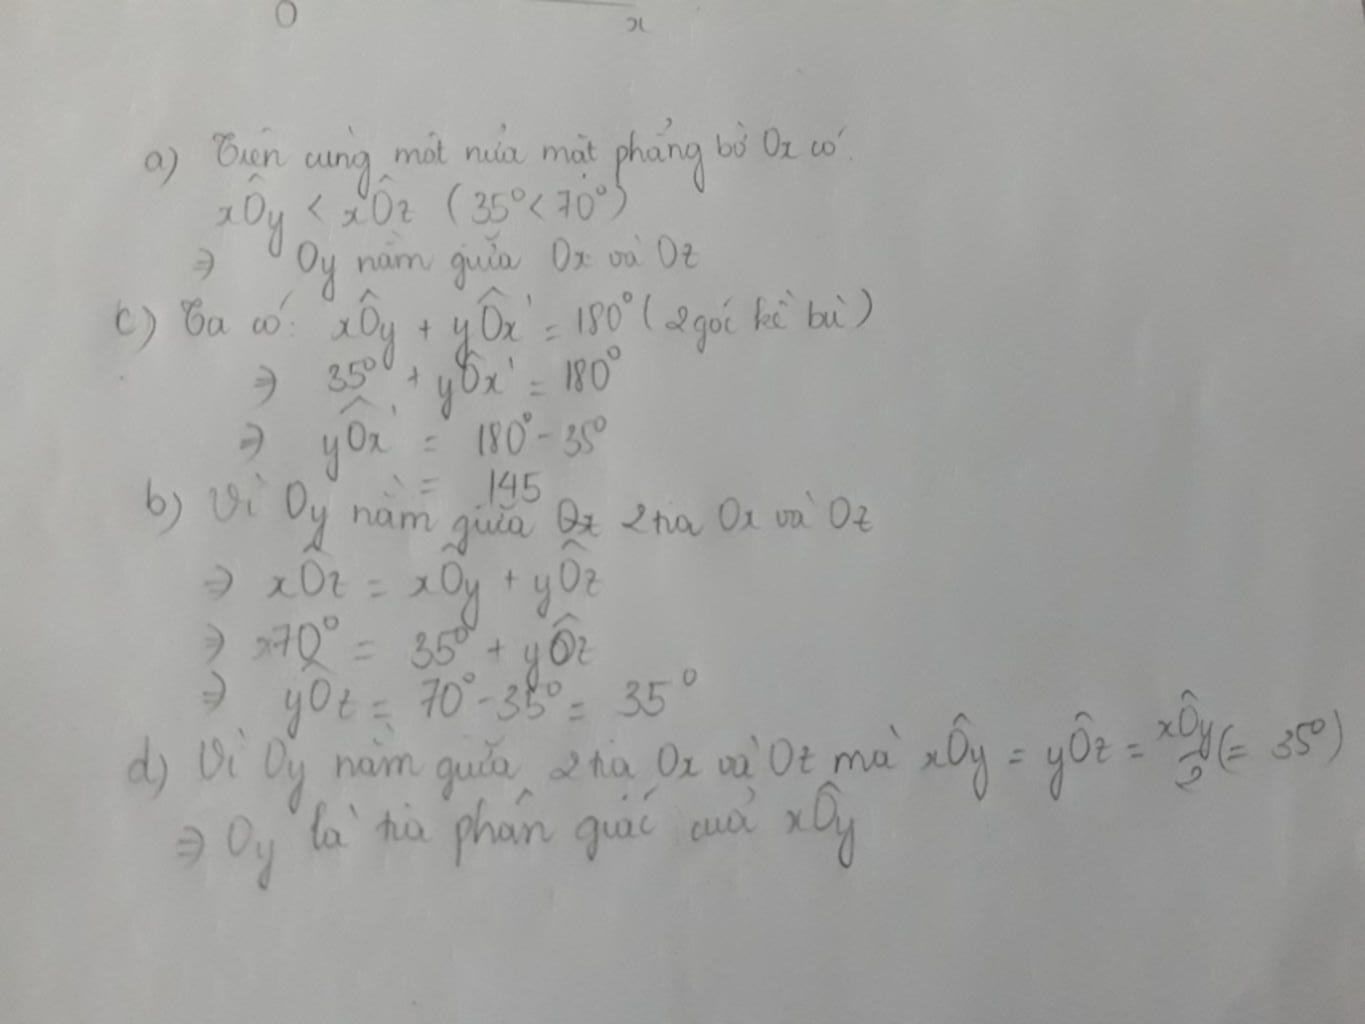 O x
a) Trên cùng một nửa mặt phẳng bờ Ox có:
xÔy < xÔz (35° < 70°)
⇒ Oy nằm giữa Ox và Oz
c) Ta có: xÔy + yÔx' = 180° (2 góc kề bù)
⇒ 35° + yÔx' = 180°
⇒ yÔx' = 180° - 35°
= 145
b) Vì Oy nằm giữa 2 tia Ox và Oz
⇒ xÔz = xÔy + yÔz
⇒ 70° = 35° + yÔz
⇒ yÔz = 70° - 35° = 35°
d) Vì Oy nằm giữa 2 tia Ox và Oz mà xÔy = yÔz = xÔy/2 (= 35°)
⇒ Oy là tia phân giác của xÔy